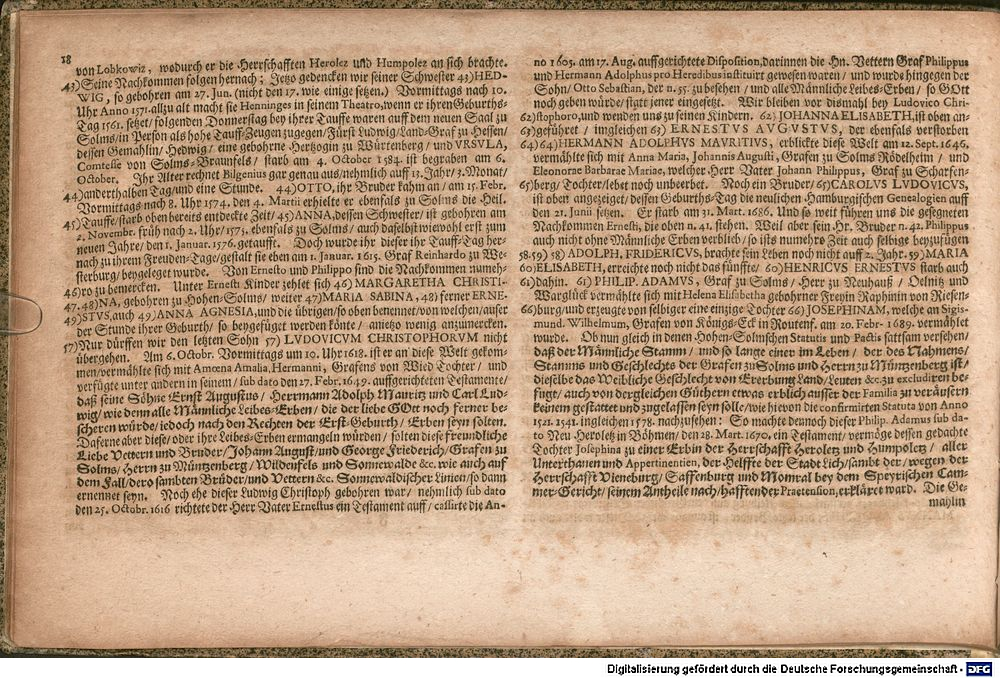 18
von Lobkowiz, wodurch er die Herrschafften Herolez und Humpolez an sich brachte.
43) Seine Nachkommen folgen hernach; Jetzo gedencken wir seiner Schwester 43) HED-
WIG, so gebohren am 27. Jun. (nicht den 17. wie einige setzen.) Vormittags nach 10.
Uhr Anno 1571. allzu alt macht sie Henninges in seinem Theatro, wenn er ihren Geburths-
Tag 1561. setzet/ folgenden Donnerstag bey ihrer Tauffe waren auff dem neuen Saal zu
Solms/ in Person als hohe Tauff-Zeugen zugegen/ Fürst Ludwig/ Land-Graf zu Hessen/
dessen Gemahlin/ Hedwig/ eine gebohrne Hertzogin zu Würtenberg/ und URSULA,
Comtesse von Solms-Braunfels/ starb am 4. October 1584. ist begraben am 6.
October. Ihr Alter rechnet Bilgenius gar genau aus/ nehmlich auff 13. Jahr/ 3. Monat/
44) anderthalben Tag/ und eine Stunde. 44) OTTO, ihr Bruder kahm an/ am 15. Febr.
Vormittags nach 8. Uhr 1574. den 4. Martii erhielte er ebenfals zu Solms die Heil.
45) Tauffe/ starb oben bereits entdeckte Zeit/ 45) ANNA, dessen Schwester/ ist gebohren am
2. Novembr. früh nach 2. Uhr/ 1575. ebenfals zu Solms/ auch daselbst wiewohl erst zum
neuen Jahre/ den 1. Januar. 1576. getaufft. Doch wurde ihr dieser ihr Tauff-Tag her-
nach zu ihrem Freuden-Tage/ gestalt sie eben am 1. Januar. 1615. Graf Reinhardo zu We-
sterburg/ beygeleget wurde. Von Ernesto und Philippo sind die Nachkommen numeh-
46) ro zu bemercken. Unter Ernesti Kinder zehlet sich 46) MARGARETHA CHRISTI-
47. 48) NA, gebohren zu Hohen-Solms/ weiter 47) MARIA SABINA, 48) ferner ERNE-
49) STVS, auch 49) ANNA AGNESIA, und die übrigen/ so oben benennet/ von welchen/ auser
der Stunde ihrer Geburth/ so beygefüget werden könte/ anietzo wenig anzumercken.
57) Nur dürffen wir den letzten Sohn 57) LVDOVICVM CHRISTOPHORVM nicht
übergehen. Am 6. Octobr. Vormittags um 10. Uhr 1618. ist er an diese Welt gekom-
men/ vermählte sich mit Amœna Amalia, Hermanni, Grafens von Wied Tochter/ und
verfügte unter andern in seinem/ sub dato den 27. Febr. 1649. auffgerichteten Testamente/
daß seine Söhne Ernst Augustus/ Herrmann Adolph Mauritz und Carl Lud-
wig/ wie denn alle Männliche Leibes-Erben/ die der liebe GOtt noch ferner be-
scheren würde/ iedoch nach den Rechten der Erst-Geburth/ Erben seyn solten.
Daferne aber diese/ oder ihre Leibes-Erben ermangeln würden/ solten diese freundliche
Liebe Vettern und Bruder/ Johann August/ und George Friederich/ Grafen zu
Solms/ Herrn zu Müntzenberg/ Wildenfels und Sonnewalde &c. wie auch auf
dem Fall/ dero sambten Brüder/ und Vettern &c. Sonnewaldischer Linien/ so dann
ernennet seyn. Noch ehe dieser Ludwig Christoph gebohren war/ nehmlich sub dato
den 25. Octobr. 1616 richtete der Herr Vater Ernestus ein Testament auff/ cassirte die An-
no 1605. am 17. Aug. auffgerichtete Disposition, darinnen die Hn. Vettern Graf Philippus
und Hermann Adolphus pro Heredibus instituirt gewesen waren/ und wurde hingegen der
Sohn/ Otto Sebastian, der n. 55. zu besehen/ und alle Männliche Leibes-Erben/ so GOtt
noch geben würde/ statt jener eingesetzt. Wir bleiben vor dismahl bey Ludovico Chri-
62) stophoro, und wenden uns zu seinen Kindern. 62) JOHANNA ELISABETH, ist oben an-
63) geführet/ imgleichen 63) ERNESTVS AVGVSTVS, der ebenfals verstorben
64) 64) HERMANN ADOLPHVS MAVRITIVS, erblickte diese Welt am 12. Sept. 1646.
vermählte sich mit Anna Maria, Johannis Augusti, Grafen zu Solms Rödelheim/ und
Eleonorae Barbarae Mariae, welcher Herr Vater Johann Philippus, Graf zu Scharfen-
65) berg/ Tochter/ lebet noch unbeerbet. Noch ein Bruder/ 65) CAROLVS LVDOVICVS,
ist oben angezeiget/ dessen Geburths-Tag die neulichen Hamburgischen Genealogien auff
den 21. Junii setzen. Er starb am 31. Mart. 1686. Und so weit führen uns die gesegneten
Nachkommen Ernesti, die oben n. 41. stehen. Weil aber sein Hr. Bruder n. 42. Philippus
auch nicht ohne Männliche Erben verblich/ so ists numehro Zeit auch selbige beyzufügen
58. 59) 58) ADOLPH. FRIDERICVS, brachte sein Leben noch nicht auff 2. Jahr. 59) MARIA
60) ELISABETH, erreichte noch nicht das fünffte/ 60) HENRICVS ERNESTVS starb auch
61) dahin. 61) PHILIP. ADAMVS, Graf zu Solms/ Herr zu Neuhauß/ Oelnitz und
Warglück vermählte sich mit Helena Elisabetha gebohrner Freyin Raphinin von Riesen-
66) burg/ und erzeugte von selbiger eine einzige Tochter 66) JOSEPHINAM, welche an Sigis-
mund. Wilhelmum, Grafen von Königs-Eck in Routenf. am 20. Febr. 1689. vermählet
wurde. Ob nun gleich in denen Hohen-Solmschen Statutis und Pactis sattsam versehen/
daß der Männliche Stamm/ und so lange einer im Leben/ der des Nahmens/
Stamms und Geschlechts der Grafen zu Solms und Herrn zu Müntzenberg ist/
dieselbe das Weibliche Geschlecht von Ererbung Land/ Leuten &c. zu excludiren be-
fügt/ auch von dergleichen Güthern etwas erblich ausser der Familia zu veräusern
keinem gestattet und zugelassen seyn solle/ wie hievon die confirmirten Statuta von Anno
1521. 1541. ingleichen 1578. nachzusehen: So machte dennoch dieser Philip. Adamus sub da-
to Neu Heroletz in Böhmen/ den 28. Mart. 1670. ein Testament/ vermöge dessen gedachte
Tochter Josephina zu einer Erbin der Herrschafft Heroletz und Humpoletz/ aller
Unterthanen und Appertinentien, der Helffte der Stadt Lich/ sambt der/ wegen der
Herrschafft Vieneburg/ Saffenburg und Momral bey dem Speyrischen Cam-
mer-Gericht/ seinem Antheile nach/ hafftender Praetension, erkläret ward. Die Ge-
mahlin
Digitalisierung gefördert durch die Deutsche Forschungsgemeinschaft - DFG